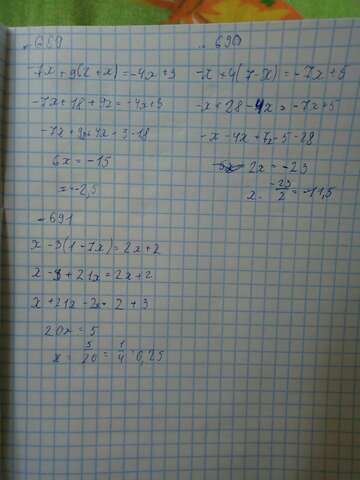 689
-7x + 9(2 + x) = -4x + 3
-7x + 18 + 9x = -4x + 3
-7x + 9x + 4x = 3 - 18
6x = -15
= -2,5
690
-x + 4(7 - x) = -7x + 5
-x + 28 - 4x = -7x + 5
-x - 4x + 7x = 5 - 28
2x = -23
x = -23/2 = -11,5
691
x - 3(1 - 7x) = 2x + 2
x - 3 + 21x = 2x + 2
x + 21x - 2x = 2 + 3
20x = 5
x = 5/20 = 1/4 = 0,25